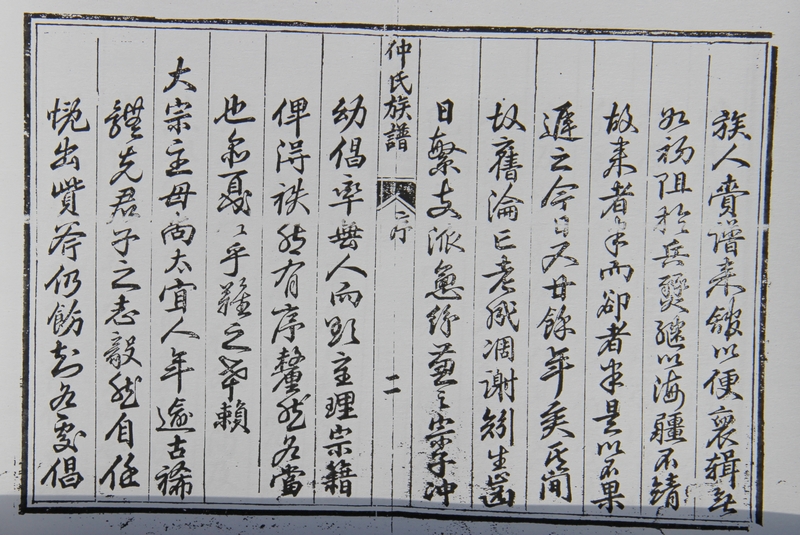 族人賚譜来館以便裒輯詎
如初阻於兵燹繼以海疆不靖
故来者半而卻者半是以不果
遲之今日又廿餘年矣其間
故舊淪亡老成凋謝矧生齒
日繁支派愈紛兼之宗子冲
仲氏族譜
序
二
幼倡率無人而欲主理宗籍
俾得秩然有序釐然各當
也亦戛〻乎難之幸賴
大宗主母尚太宜人年逾古稀
先君子之志毅然自任
出貲斧仍飭赴各處倡